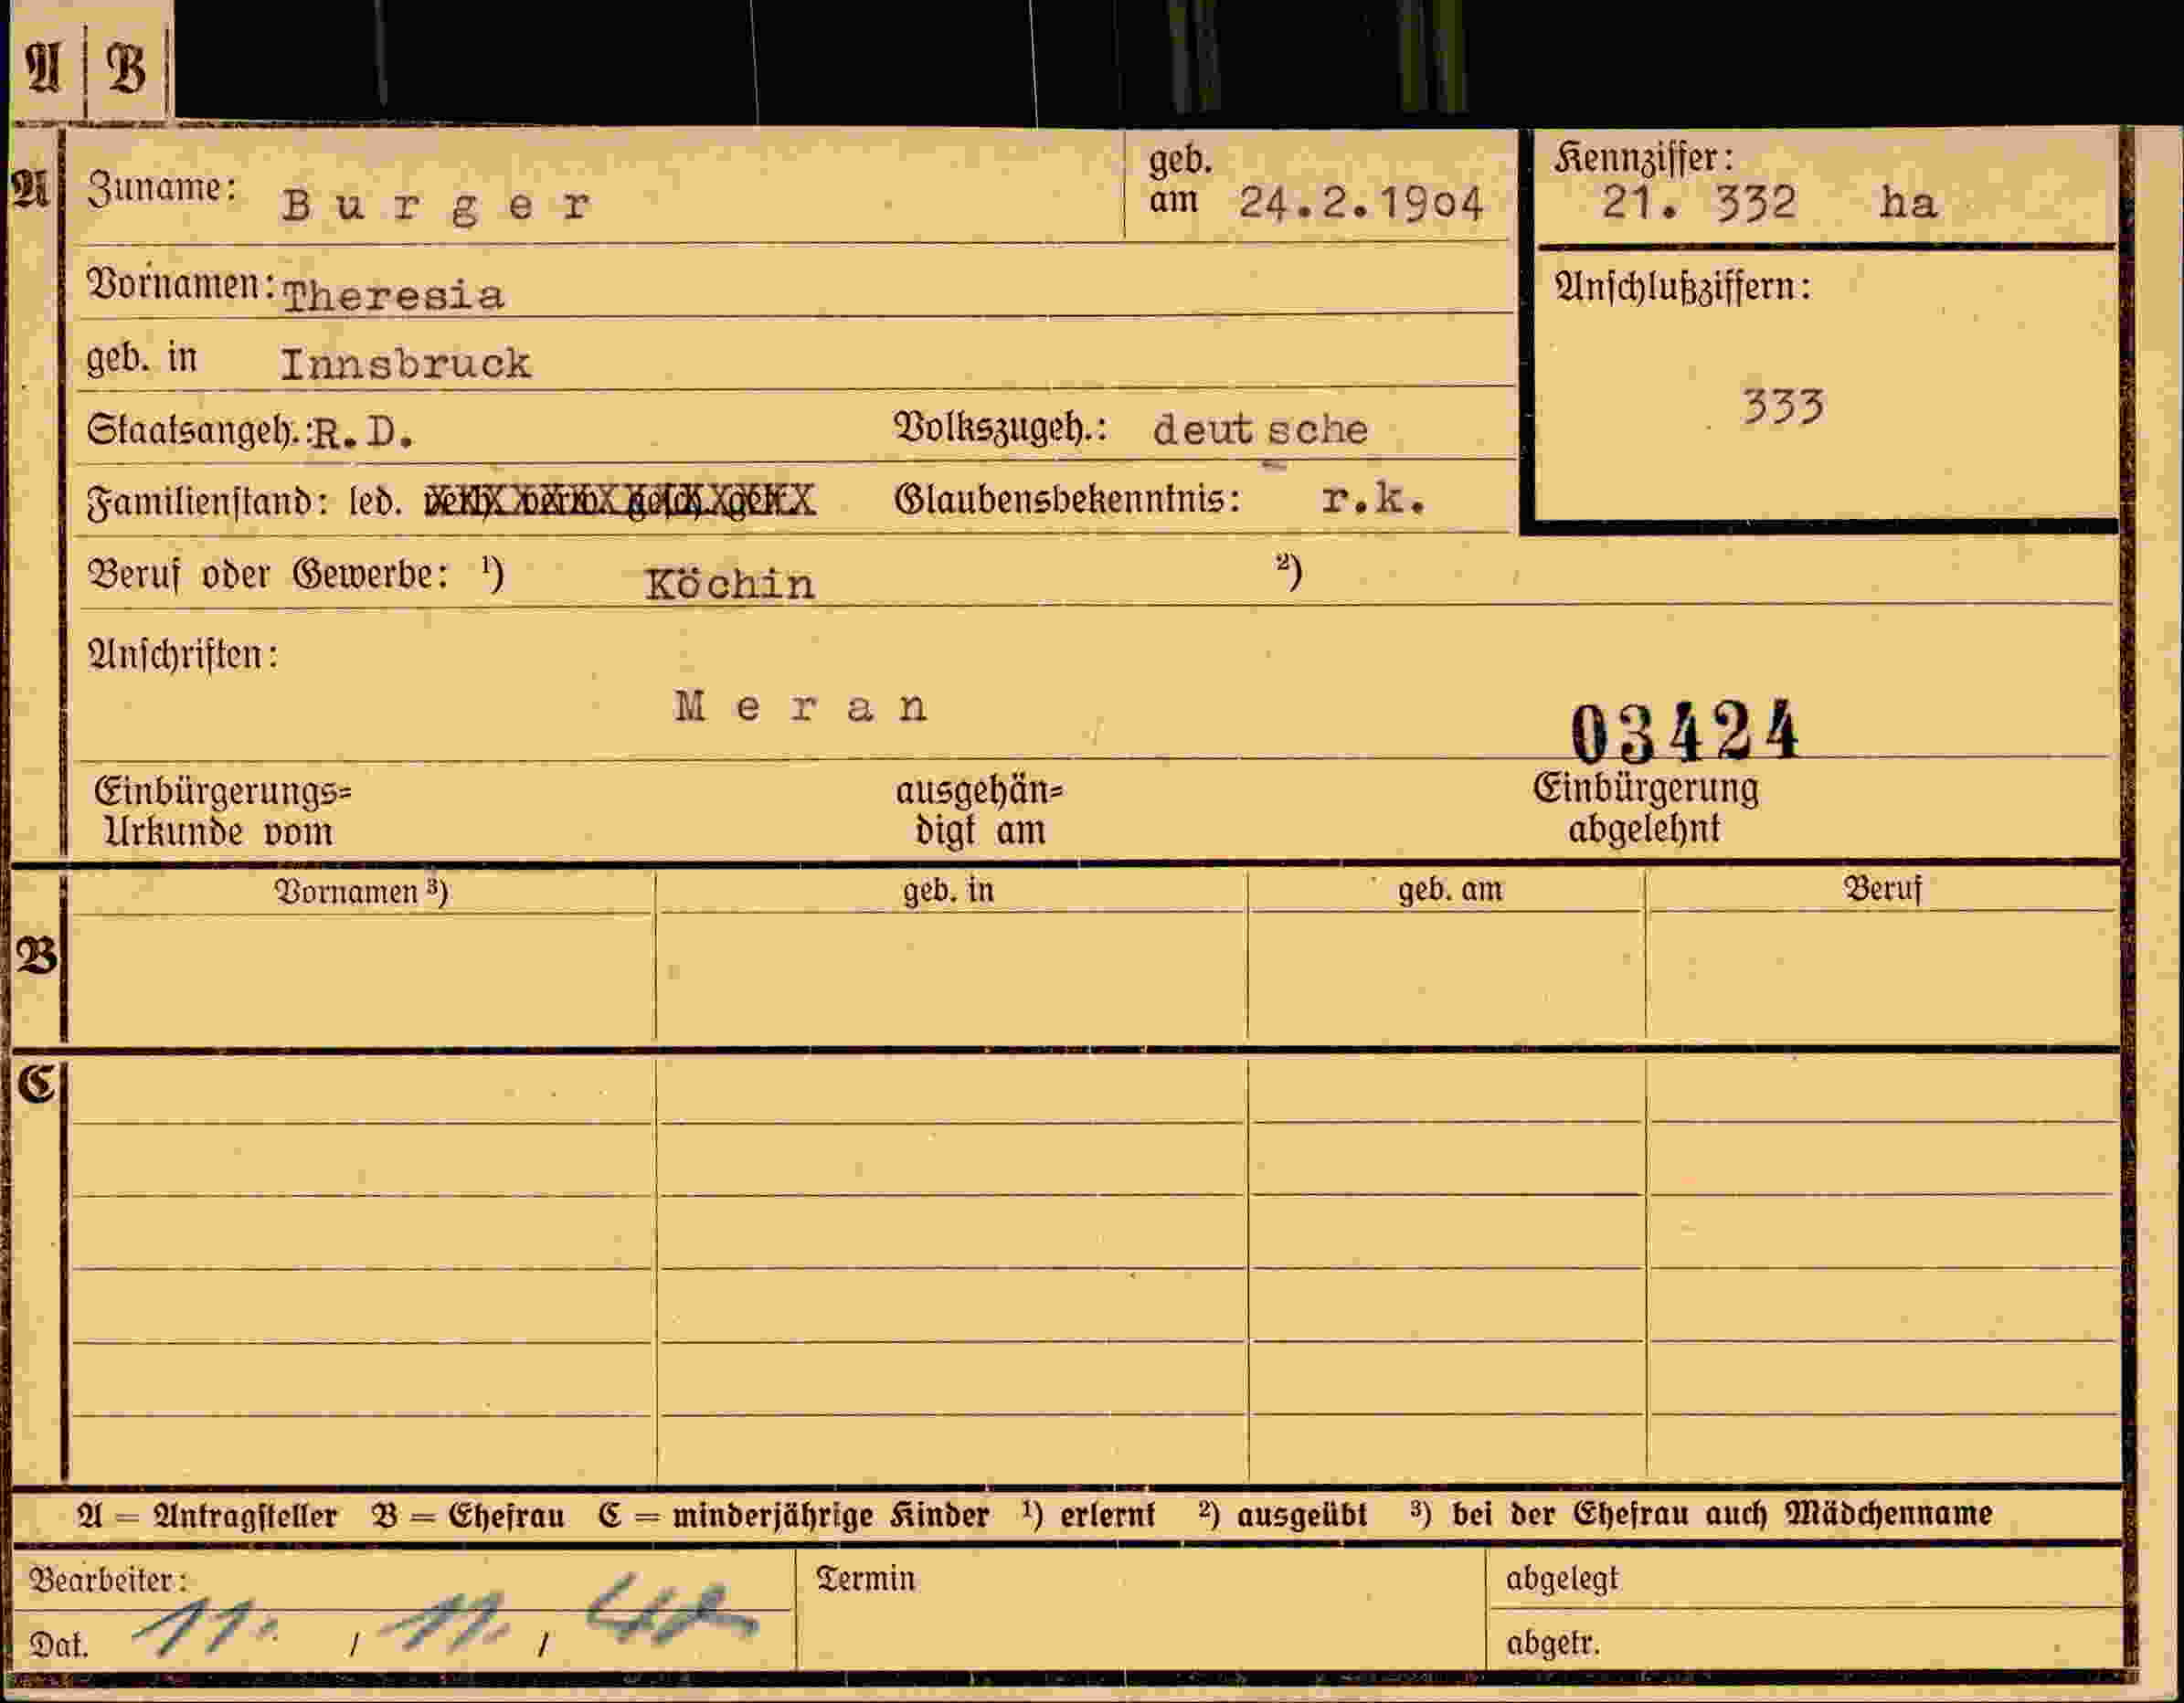 A | B
A Zuname: Burger geb. am 24.2.1904 Kennziffer: 21. 332 ha
Vornamen: Theresia Anschlußziffern:
geb. in Innsbruck 333
Staatsangeh.: R.D. Volkszugeh.: deutsche
Familienstand: led. verh. verw. gesch. getr. Glaubensbekenntnis: r.k.
Beruf oder Gewerbe: ¹) Köchin ²)
Anschriften:
Meran
03424
Einbürgerungs= ausgehän= Einbürgerung
Urkunde vom digt am abgelehnt
Vornamen ³) geb. in geb. am Beruf
B
C
A = Antragsteller B = Ehefrau C = minderjährige Kinder ¹) erlernt ²) ausgeübt ³) bei der Ehefrau auch Mädchenname
Bearbeiter: Termin abgelegt
Dat. 11. / 11. / 42 abgetr.